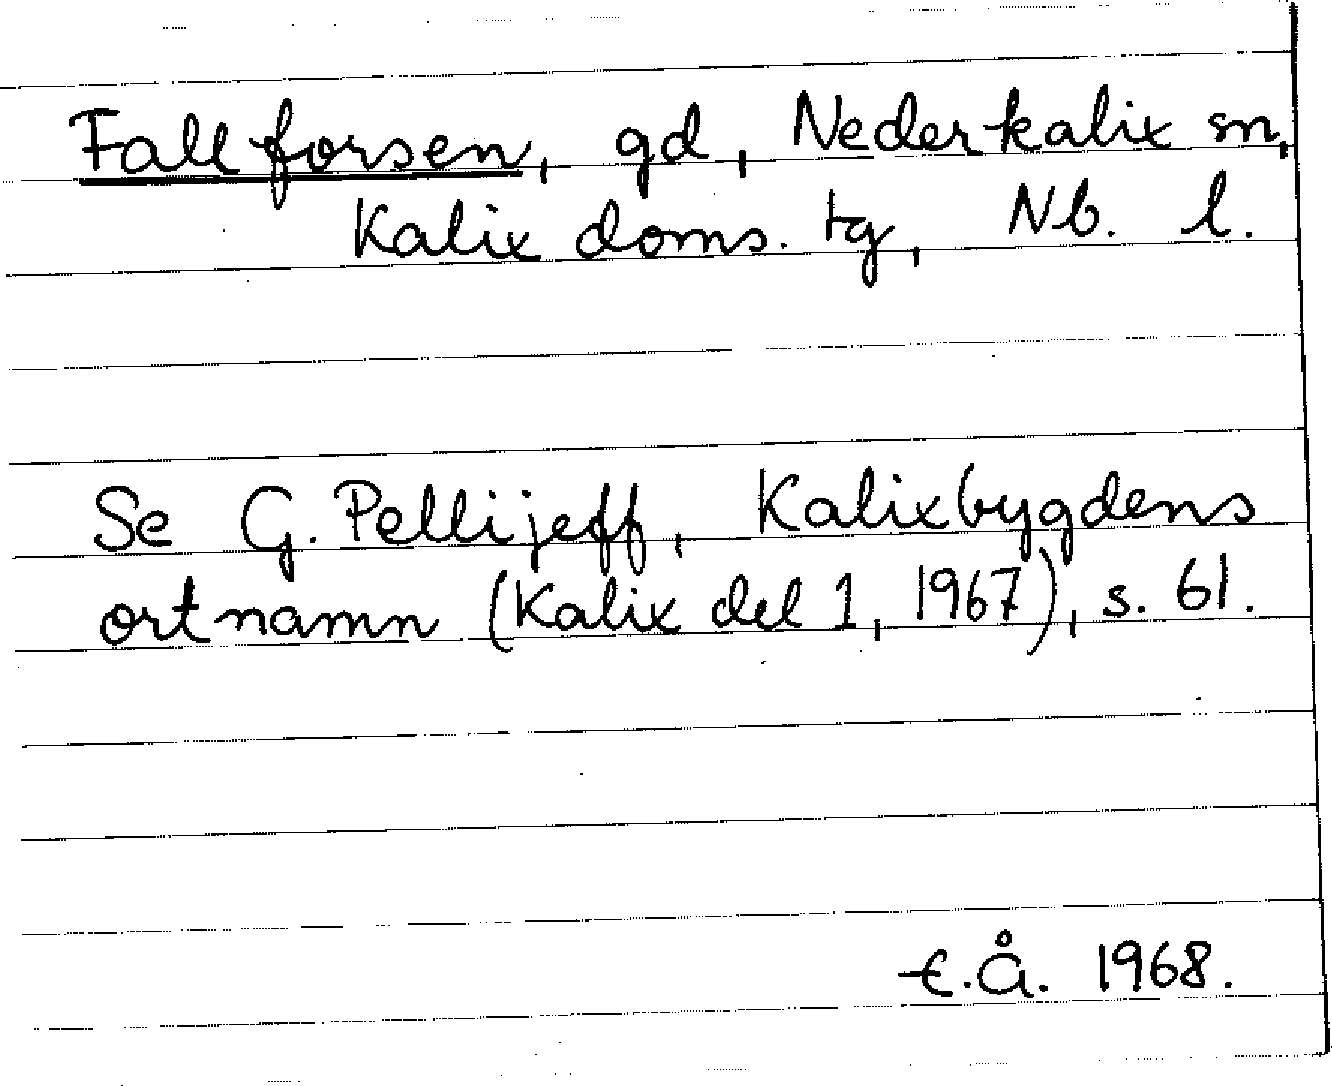 Fallforsen, gd, Nederkalix sn,
Kalix doms. tg, Nb. l.
Se G. Pellijeff, Kalixbygdens
ortnamn (Kalix del 1, 1967), s. 61.
E.Å. 1968.